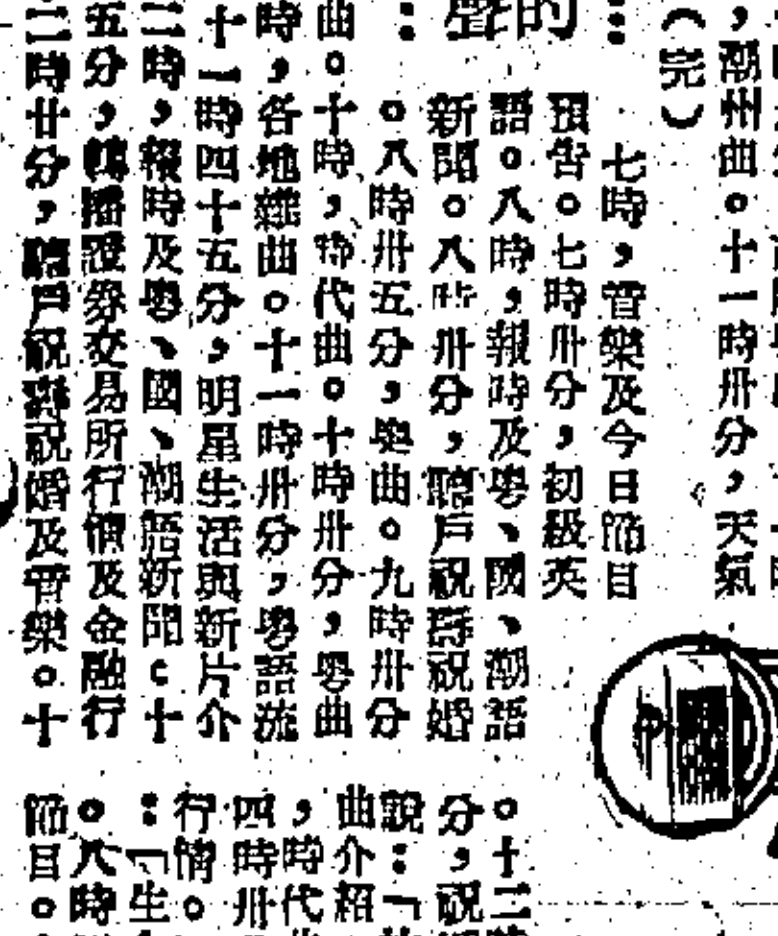 ，潮州曲。十一時卅分，天氣
（完）
…的聲：
七時，音樂及今日節目
預告。七時卅分，初級英
語。八時，報時及粵、國、潮語
新聞。八時卅分，聽戶祝壽祝婚
。八時卅五分，粵曲。九時卅分
，時代曲。十時卅分，粵曲
曲。十時
時，各地雜曲。十一時卅分，粵語流
十一時四十五分，明星生活與新片介
二時，報時及粵、國、潮語新聞。十
五分，轉播證券交易所行情及金融行
二時廿分，聽戶祝壽祝婚及音樂。十
。十二時
分，祝
說：「
曲介紹
，時代
四時卅
行情。
：「生
。八時
節目。